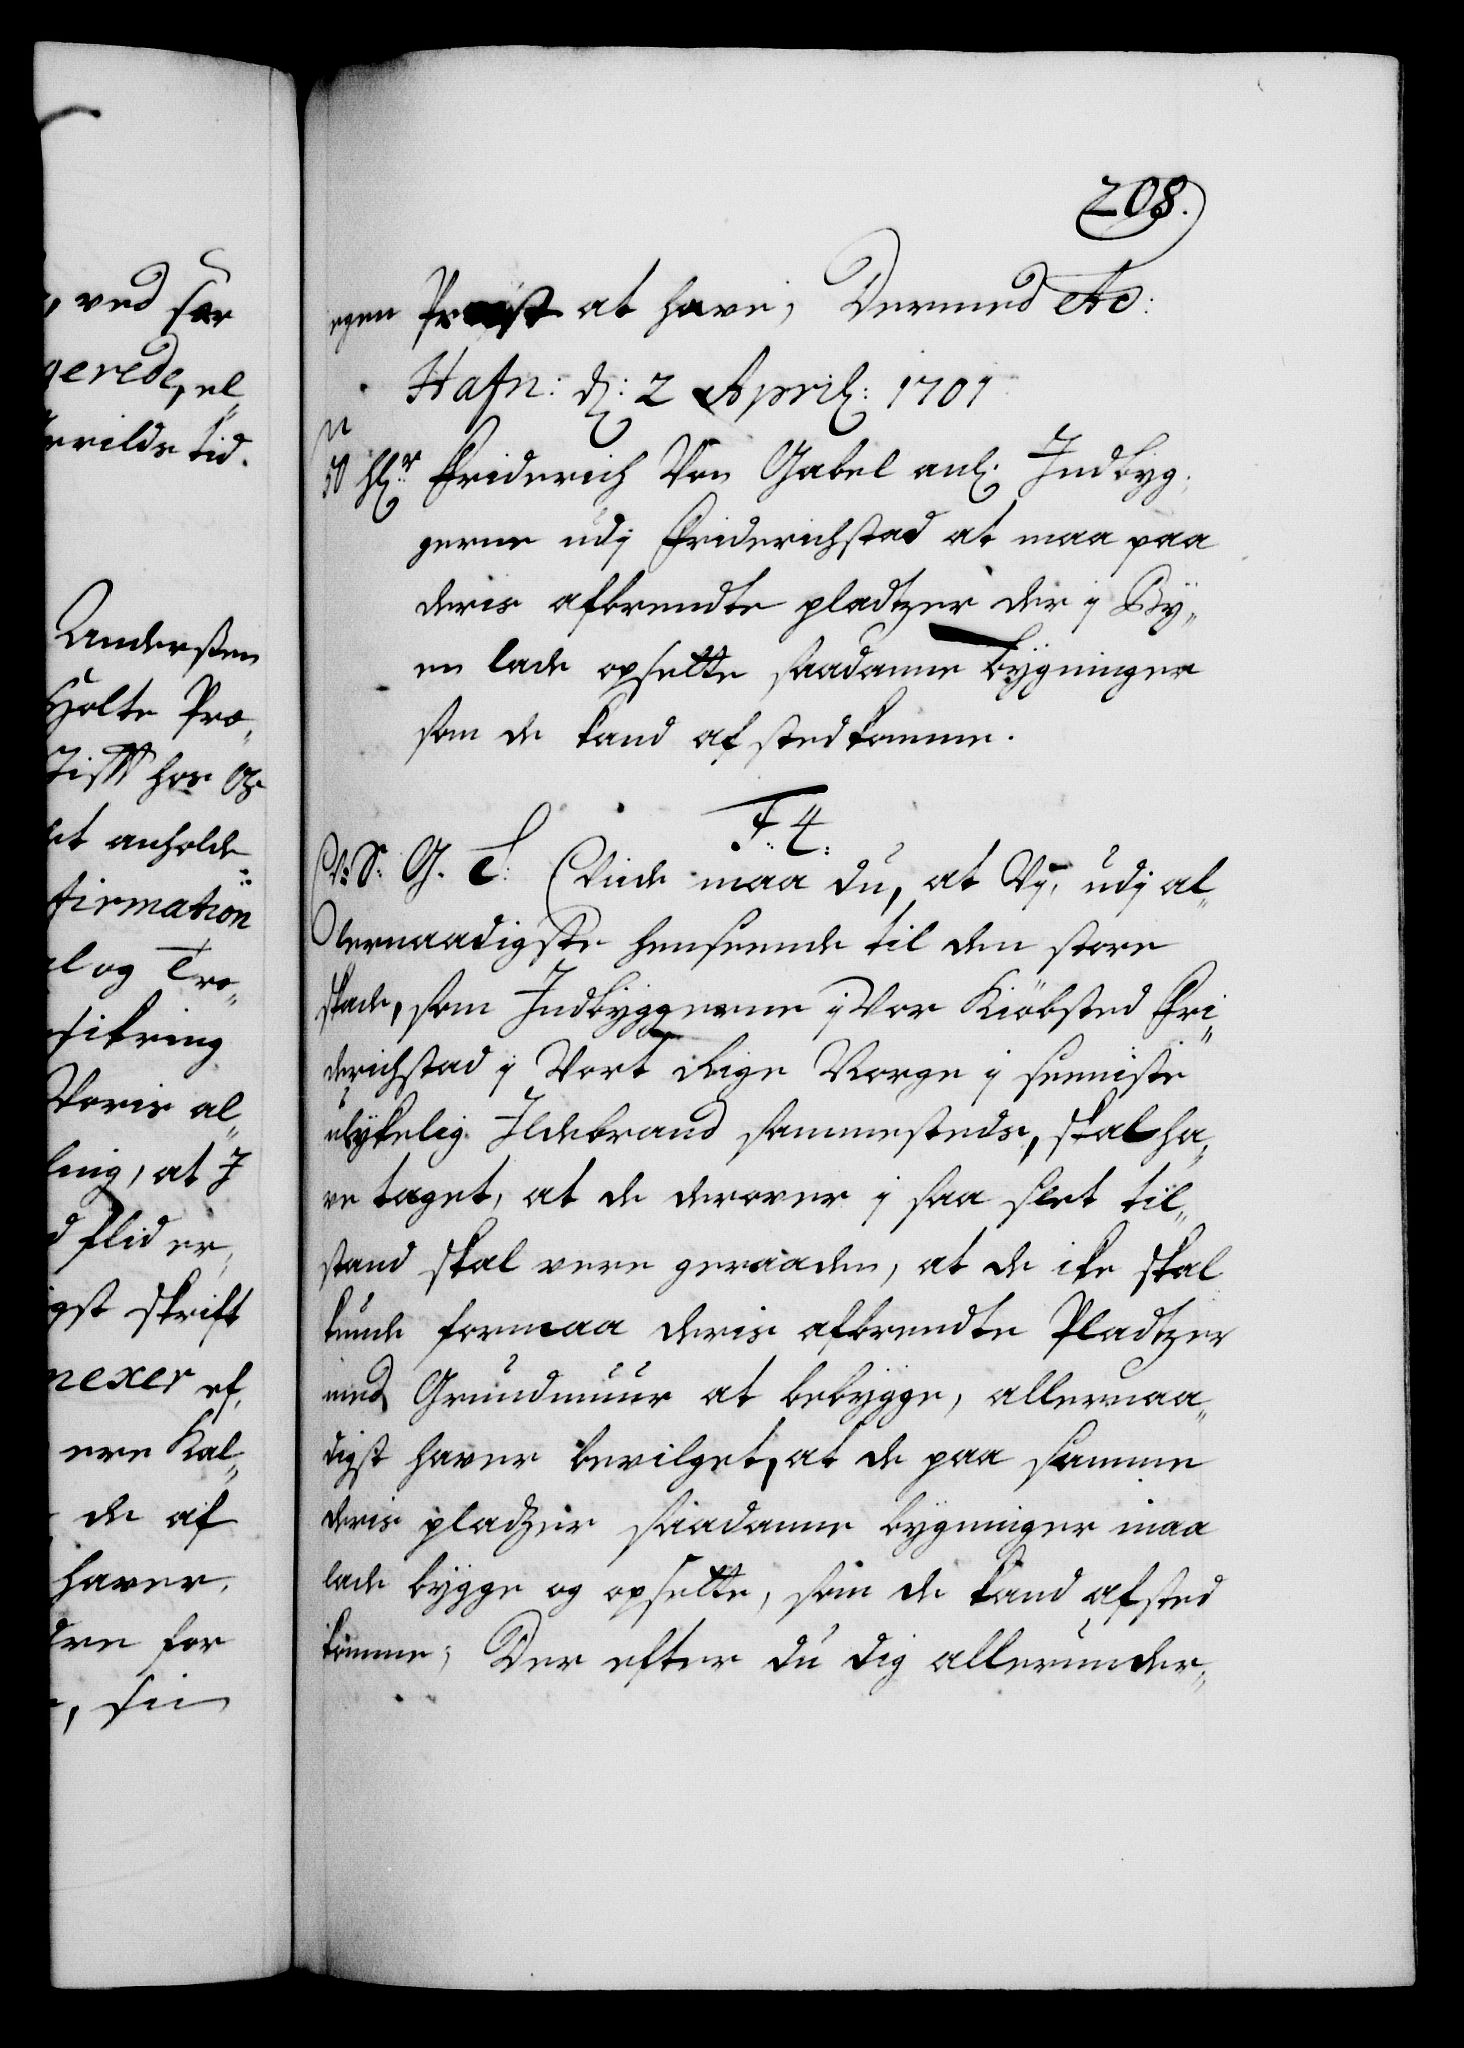 208.
egen Præst at have, Dermed etc:
Hafn: d: 2 April: 1701
Hr Friderich Von Gabel anl: Indbyg„
gerne udj Friderichstad at maa paa
deris afbrendte pladtzer der j By„
en lade opsette saadanne bygninger
som de kand afstedkomme.
F: 4:
V: S: G. T: Viide maa du, at Vj, udj al„
lernaadigste henseende til den store
skade, som Indbyggerne j Vor Kiöbsted Fri„
derichstad j Vort Rige Norge j seeniste
ulykelig Ildebrand sammesteds, skal ha„
ve taget, at de derover j saa slet til„
stand skal vere geraaden, at de icke skal
kunde formaa deris afbrendte Pladtzer
med Grundmuur at bebygge, allernaa„
digst haver bevilget, at de paa samme
deris pladzer saadanne bygninger maa
lade bygge og opsette, som de kand afsted
komme; Der efter du dig allerunder„
, ved sær
gerede, el„
tid.
Andersen
Holte Præ„
hos
anholde„
firmation
og Tro„
sikring
Voris al„
ning, at I
flid er„
igst skrift
nexer ef„
ere Kal„
de af
haver,
dre for
, sin